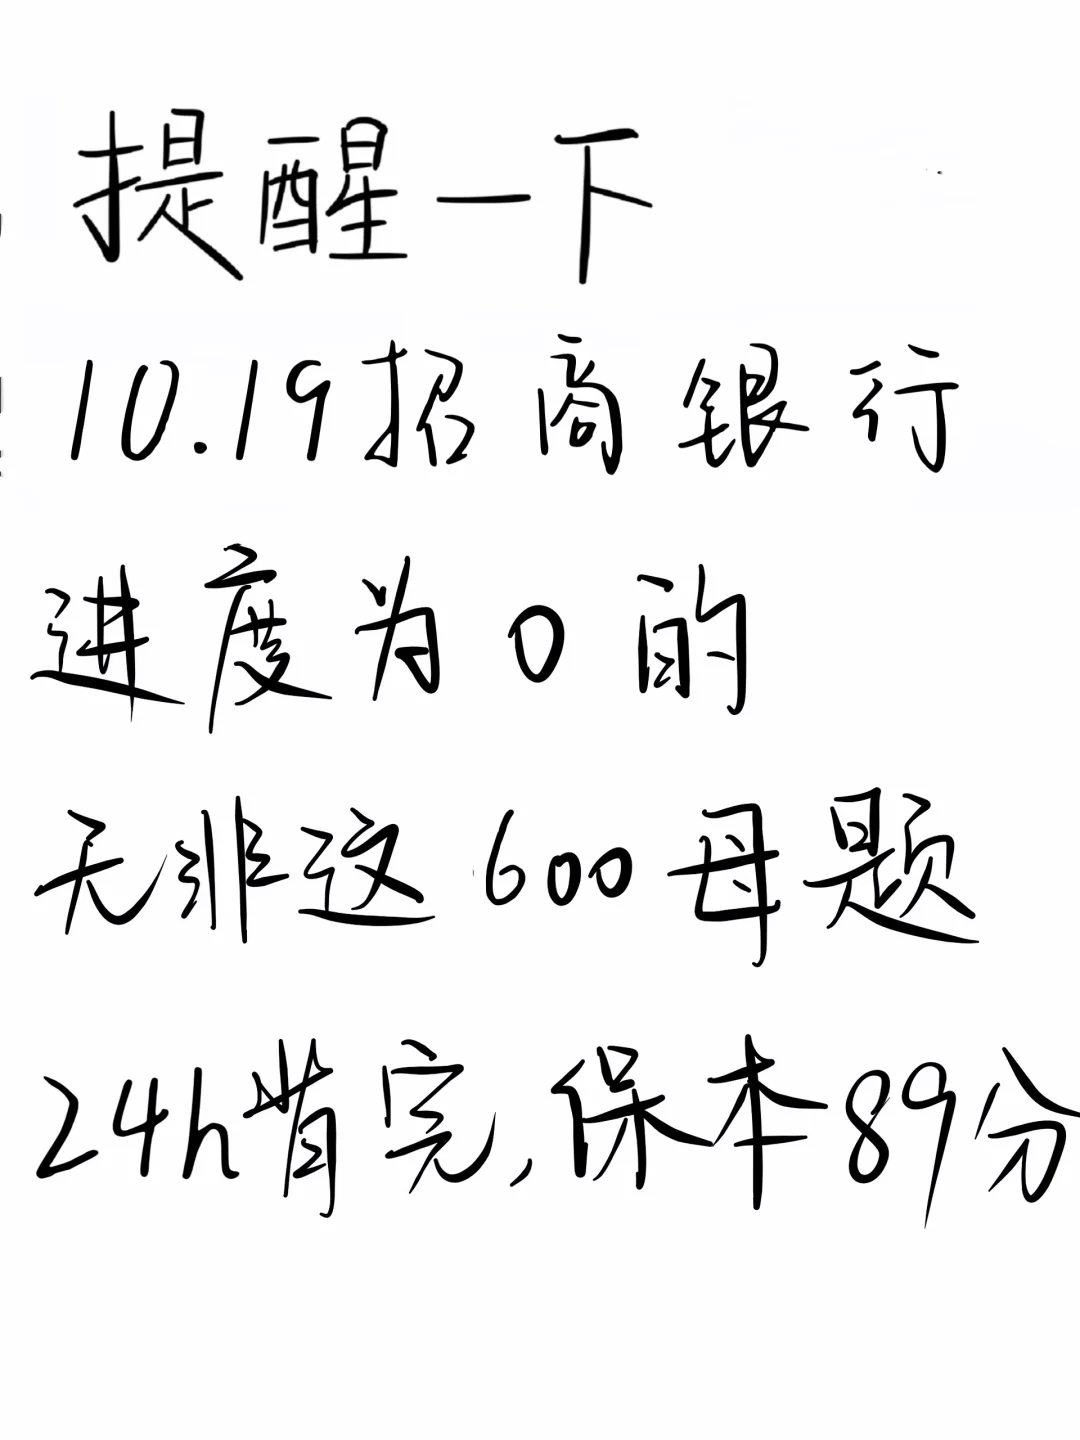 提醒一下
10.19招商银行
进度为0的
无非这600母题
24h背完,保本89分